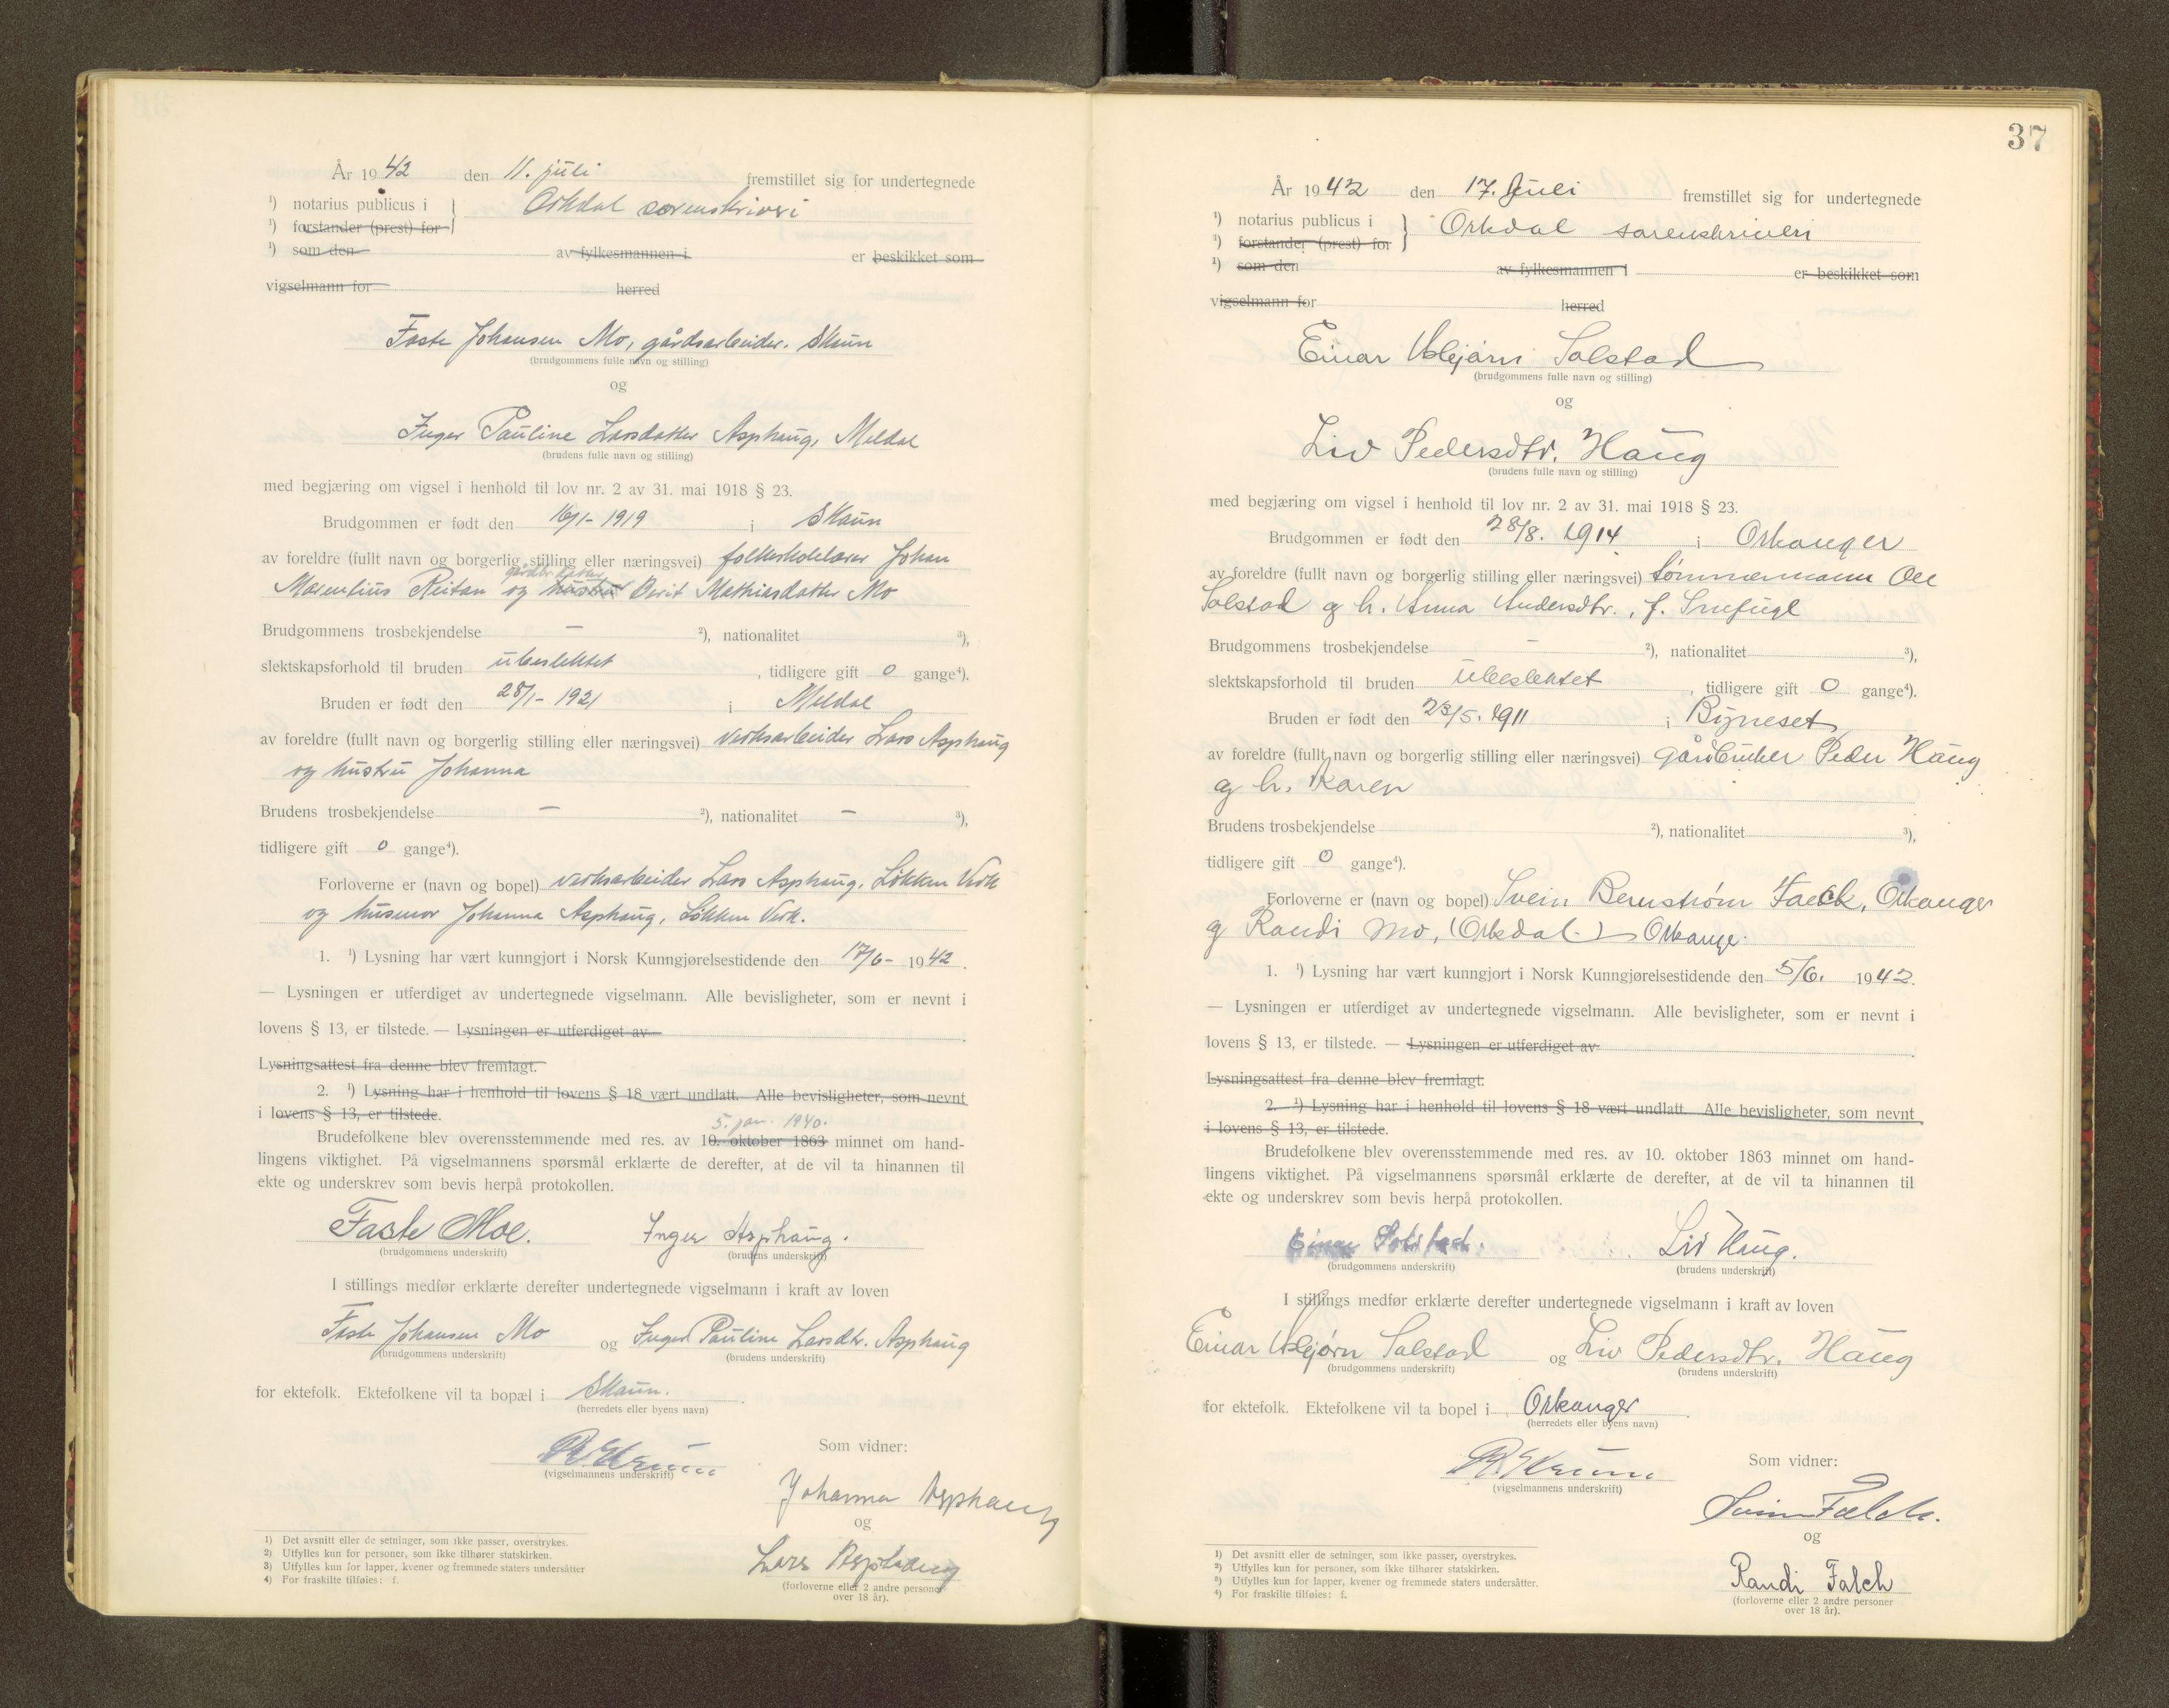 År 1942 den 11. juli fremstillet sig for undertegnede
¹) notarius publicus i } Orkdal sorenskriveri
¹) forstander (prest) for
¹) som den av fylkesmannen i er beskikket som
vigselmann for herred
Faste Johansen Mo, gårdsarbeider. Skaun
(brudgommens fulle navn og stilling)
og
Inger Pauline Larsdatter Asphaug, Meldal
(brudens fulle navn og stilling)
med begjæring om vigsel i henhold til lov nr. 2 av 31. mai 1918 § 23.
Brudgommen er født den 16/1- 1919 i Skaun
av foreldre (fullt navn og borgerlig stilling eller næringsvei) folkeskolelærer Johan
Marenlius Reitan og hustru Berit Mathiasdatter Mo
Brudgommens trosbekjendelse — ²), nationalitet ³),
slektskapsforhold til bruden ubeslektet, tidligere gift 0 gange⁴).
Bruden er født den 28/1- 1921 i Meldal
av foreldre (fullt navn og borgerlig stilling eller næringsvei) verksarbeider Lars Asphaug
og hustru Johanna
Brudens trosbekjendelse — ²), nationalitet — ³),
tidligere gift 0 gange⁴).
Forloverne er (navn og bopel) verksarbeider Lars Asphaug, Løkken Verk
og husmor Johanna Asphaug, Løkken Verk.
1. ¹) Lysning har vært kunngjort i Norsk Kunngjørelsestidende den 17/6- 1942.
— Lysningen er utferdiget av undertegnede vigselmann. Alle bevisligheter, som er nevnt i
lovens § 13, er tilstede. — Lysningen er utferdiget av
Lysningsattest fra denne blev fremlagt.
2. ¹) Lysning har i henhold til lovens § 18 vært undlatt. Alle bevisligheter, som nevnt
i lovens § 13, er tilstede.
5. jan. 1940.
Brudefolkene blev overensstemmende med res. av 10. oktober 1863 minnet om hand-
lingens viktighet. På vigselmannens spørsmål erklærte de derefter, at de vil ta hinannen til
ekte og underskrev som bevis herpå protokollen.
Faste Moe. Inger Asphaug.
(brudgommens underskrift) (brudens underskrift)
I stillings medfør erklærte derefter undertegnede vigselmann i kraft av loven
Faste Johansen Mo og Inger Pauline Larsdtr. Asphaug
(brudgommens underskrift) (brudens underskrift)
for ektefolk. Ektefolkene vil ta bopæl i Skaun.
(herredets eller byens navn)
Som vidner:
(vigselmannens underskrift)
Johanna Asphaug
og
Lars Asphaug
(forloverne eller 2 andre personer
over 18 år).
1) Det avsnitt eller de setninger, som ikke passer, overstrykes.
2) Utfylles kun for personer, som ikke tilhører statskirken.
3) Utfylles kun for lapper, kvener og fremmede staters undersåtter
4) For fraskilte tilføies: f.
37
År 1942 den 17. Juli fremstillet sig for undertegnede
¹) notarius publicus i } Orkdal sorenskriveri
¹) forstander (prest) for
¹) som den av fylkesmannen i er beskikket som
vigselmann for herred
Einar Asbjørn Solstad
(brudgommens fulle navn og stilling)
og
Liv Pedersdtr. Haug
(brudens fulle navn og stilling)
med begjæring om vigsel i henhold til lov nr. 2 av 31. mai 1918 § 23.
Brudgommen er født den 28/8. 1914 i Orkanger
av foreldre (fullt navn og borgerlig stilling eller næringsvei) tømmermann Ole
Solstad og h. Anna Andersdtr., f. Snefugl
Brudgommens trosbekjendelse — ²), nationalitet ³),
slektskapsforhold til bruden ubeslektet, tidligere gift 0 gange⁴).
Bruden er født den 23/5. 1911 i Byneset
av foreldre (fullt navn og borgerlig stilling eller næringsvei) gårdbruker Peder Haug
og h. Karen
Brudens trosbekjendelse ²), nationalitet ³),
tidligere gift 0 gange⁴).
Forloverne er (navn og bopel) Svein Bernstrøm Falck, Orkanger
og Randi Mo, (Orkdal.) Orkange.
1. ¹) Lysning har vært kunngjort i Norsk Kunngjørelsestidende den 5/6. 1942.
— Lysningen er utferdiget av undertegnede vigselmann. Alle bevisligheter, som er nevnt i
lovens § 13, er tilstede. — Lysningen er utferdiget av
Lysningsattest fra denne blev fremlagt.
2. ¹) Lysning har i henhold til lovens § 18 vært undlatt. Alle bevisligheter, som nevnt
i lovens § 13, er tilstede.
Brudefolkene blev overensstemmende med res. av 10. oktober 1863 minnet om hand-
lingens viktighet. På vigselmannens spørsmål erklærte de derefter, at de vil ta hinannen til
ekte og underskrev som bevis herpå protokollen.
Einar Solstad. Liv Haug.
(brudgommens underskrift) (brudens underskrift)
I stillings medfør erklærte derefter undertegnede vigselmann i kraft av loven
Einar Asbjørn Solstad og Liv Pedersdtr. Haug
(brudgommens underskrift) (brudens underskrift)
for ektefolk. Ektefolkene vil ta bopel i Orkanger
(herredets eller byens navn)
Som vidner:
(vigselmannens underskrift)
Svein Falck.
og
Randi Falch
(forloverne eller 2 andre personer
over 18 år).
1) Det avsnitt eller de setninger, som ikke passer, overstrykes.
2) Utfylles kun for personer, som ikke tilhører statskirken.
3) Utfylles kun for lapper, kvener og fremmede staters undersåtter.
4) For fraskilte tilføies: f.